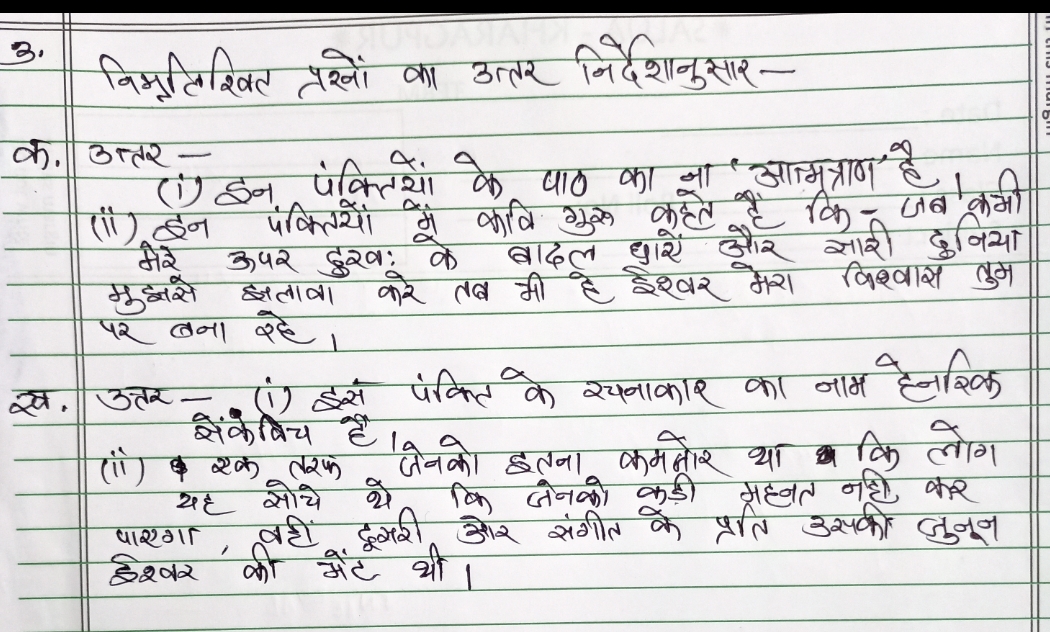 3.
निम्नलिखित प्रश्नों का उत्तर निर्देशानुसार—
क. उत्तर —
(i) इन पंक्तियों के पाठ का ना 'आत्मत्राण' है।
(ii) इन पंक्तियों में कवि गुरू कहते हैं कि - जब कभी
मेरे ऊपर दुखः के बादल छायें और सारी दुनिया
मुझसे छलावा करे तब भी हे ईश्वर मेरा विश्वास तुम
पर बना रहे।
ख. उत्तर — (i) इस पंक्ति के रचनाकार का नाम हेनरिक
सेंकेविच है।
(ii) एक तरफ जेनको इतना कमजोर था कि लोग
यह सोचे थे कि जेनको कड़ी महनत नही कर
पाएगा, वहीं दूसरी ओर संगीत के प्रति उसकी जुनून
ईश्वर की भेंट थी।